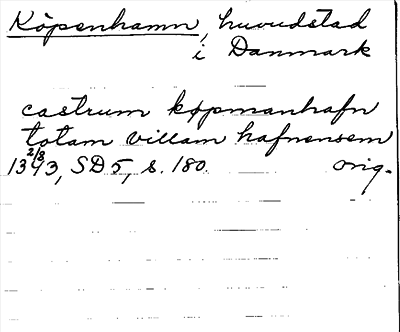 Köpenhamn, huvudstad
i Danmark
castrum køpmanhafn
totam villam hafnensem
1343 2/8, SD5, s. 180. orig.